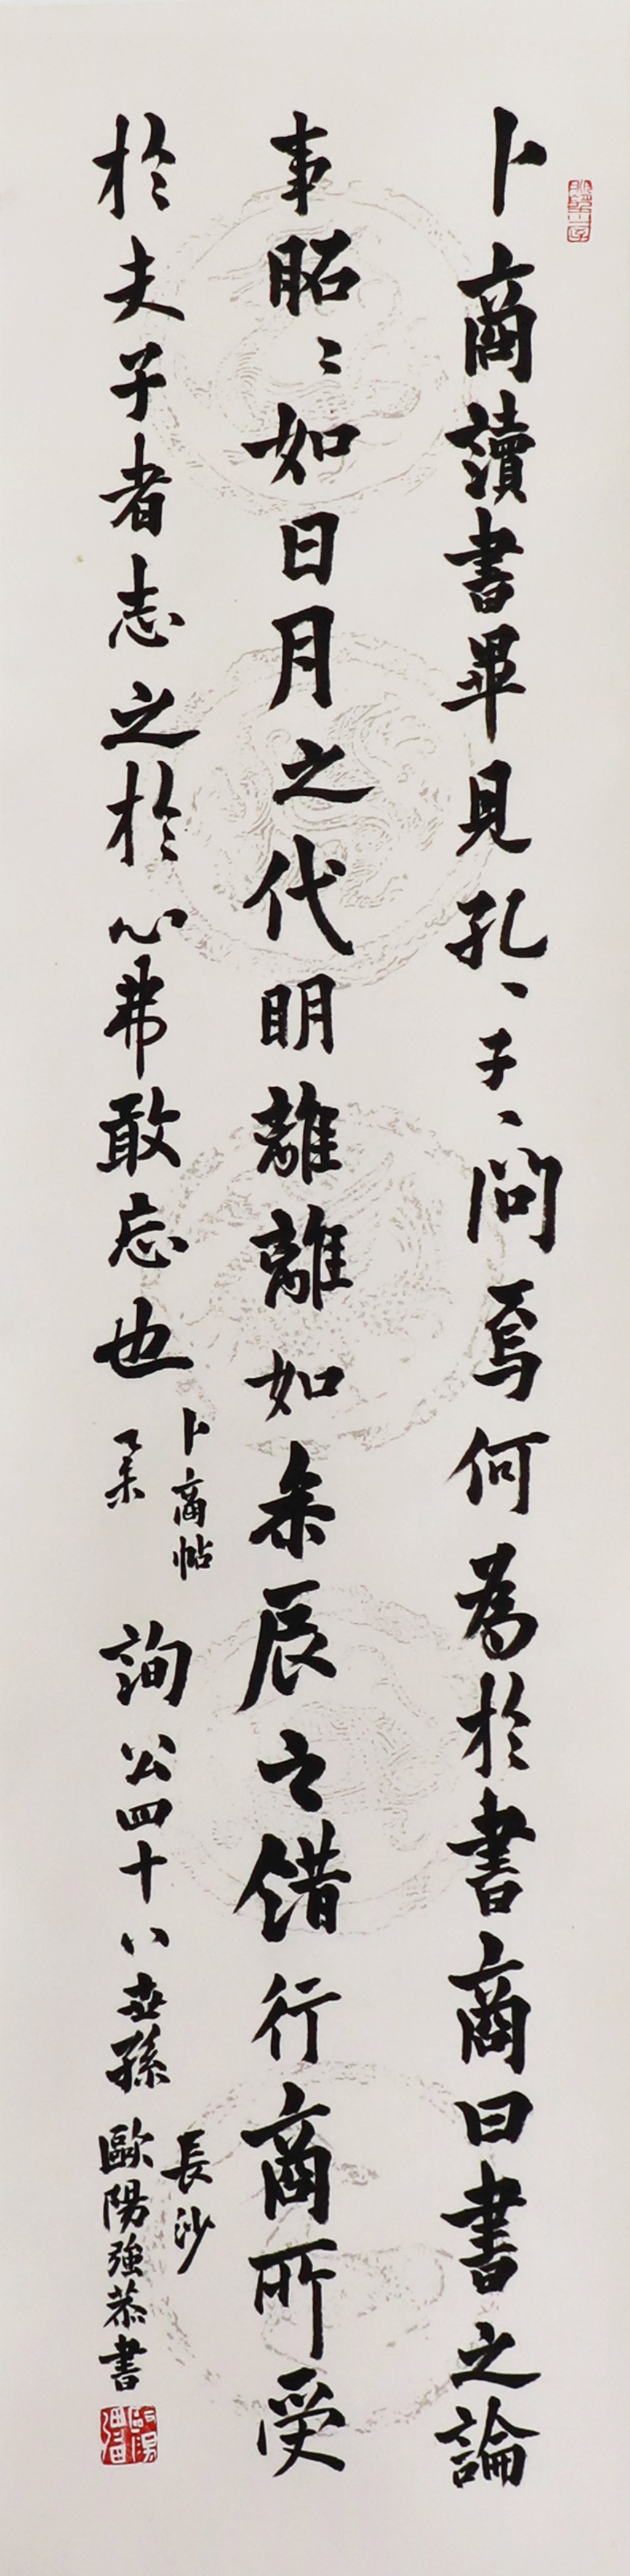 卜商讀書畢見孔、子、問焉何為於書商曰書之論
事昭〻如日月之代明離離如參辰之錯行商所受
於夫子者志之於心弗敢忘也
卜商帖
乙未
詢公四十八世孫
長沙
歐陽強恭書